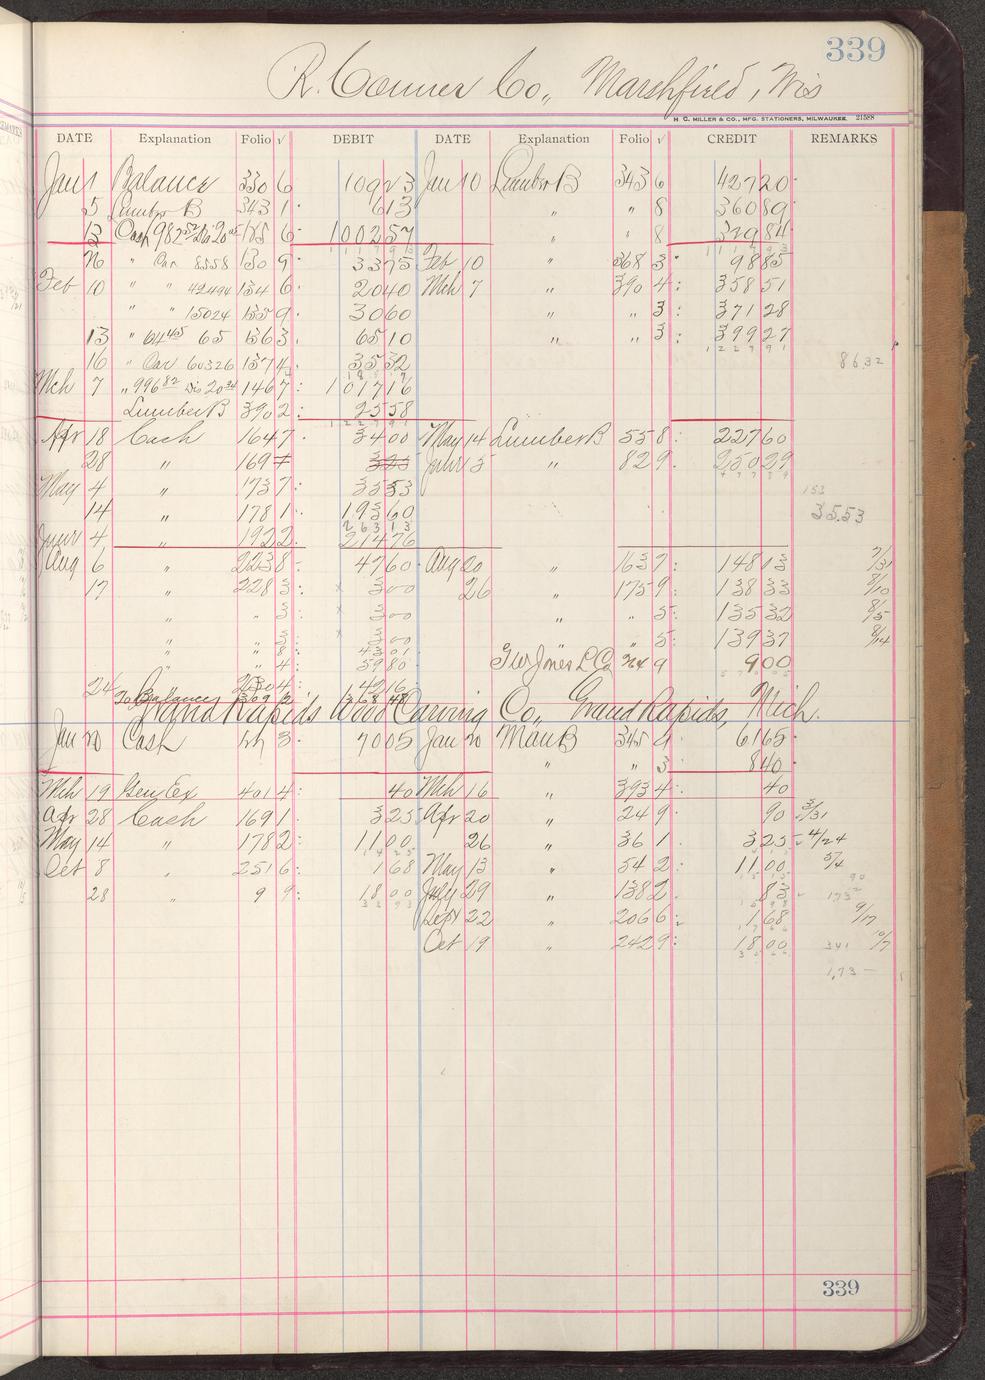 339
R. Connor Co., Marshfield, Wis
H. C. MILLER & CO., MFG. STATIONERS, MILWAUKEE 21588
DATE Explanation Folio √ DEBIT DATE Explanation Folio √ CREDIT REMARKS
Jan 1 Balance 330 6 109 23 Jan 10 Lumber B 343 6 427 20
5 Lumber B 343 1 6 13 " " 8 360 89
13 Cash 982 52 Dis 20 05 125 6 1002 57 " " 8 329 84
26 " Car 8558 130 9 33 75 Feb 10 " 368 3 98 85
Feb 10 " " 42494 134 6 20 40 Mch 7 " 390 4 358 51
" " 15024 135 9 30 60 " " 3 371 28
13 " 64 45 65 136 3 65 10 " " 3 399 27
16 " Car 60326 137 4 35 32 86 32
Mch 7 " 996 82 Dis 20 34 146 7 1017 16
Lumber B 390 2 25 58
Apr 18 Cash 164 7 34 00 May 14 Lumber B 55 8 227 60
28 " 169 7 3 25 June 5 " 82 9 250 29
May 4 " 173 7 35 53
14 " 178 1 193 60 35.53
June 4 " 192 2 214 76
Aug 6 " 223 8 47 60 Aug 20 " 163 7 148 13 7/31
17 " 228 3 3 00 26 " 175 9 138 33 8/10
" " 3 3 00 " " 5 135 32 8/5
" " 3 3 00 " " 5 139 37 8/14
" " 8 43 01 Geo Jones L Co 264 9 9 00
" " 4 59 80
24 230 4 42 16
To Balances 309 2 368 48
Grand Rapids Wood Carving Co., Grand Rapids, Mich.
Jan 20 Cash 127 3 70 05 Jan 20 Manu B 345 4 61 65
" " 3 8 40
Mch 19 Gen Ex 401 4 40 Mch 16 " 393 4 40
Apr 28 Cash 169 1 3 25 Apr 20 " 24 9 90 3/31
May 14 " 178 2 11 00 26 " 36 1 3 25 4/24
Oct 8 " 251 6 1 68 May 13 " 54 2 11 00 5/4
28 " 9 9 18 00 July 29 " 138 2 83
Sept 22 " 206 6 1 68 9/17
Oct 19 " 242 9 18 00 10/7
1.73
339